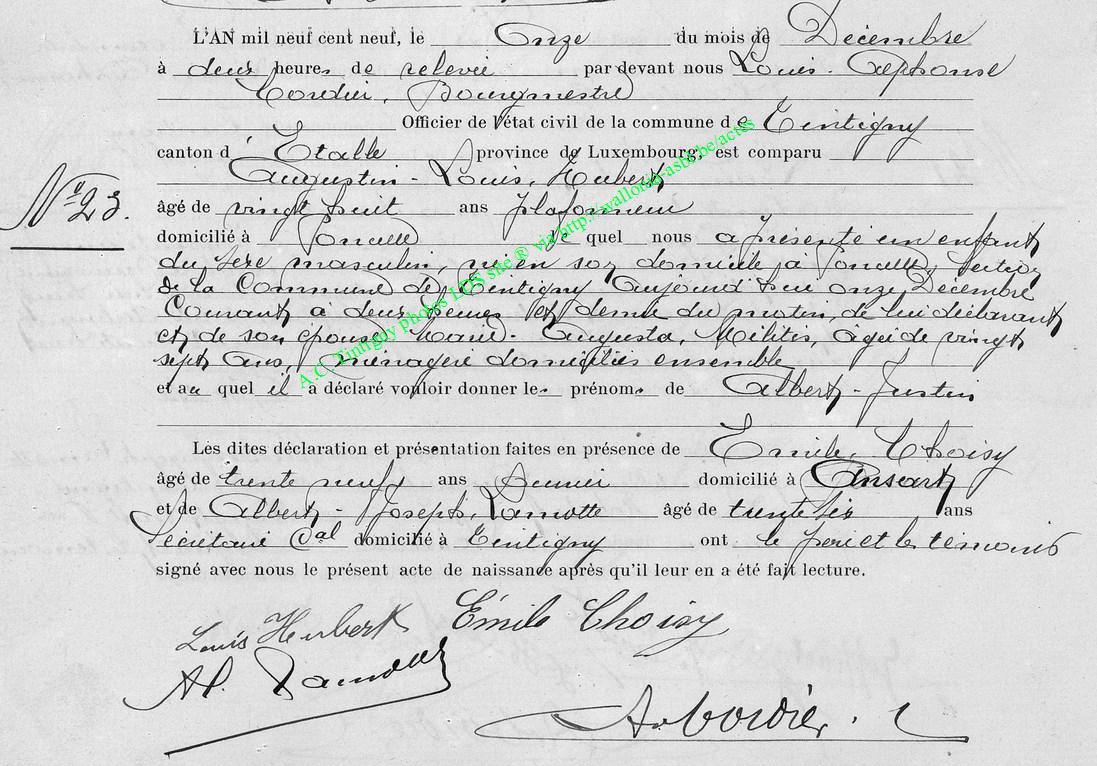 L'AN mil neuf cent neuf, le Onze du mois de Décembre
à deux heures de relevée par devant nous Louis-Alphonse
Cordier, Bourgmestre
Officier de l'état civil de la commune de Tintigny
canton d'Etalle province de Luxembourg, est comparu
Augustin-Louis, Hubert
N° 23.
âgé de vingt huit ans plafonneur
domicilié à Poncelle le quel nous a présenté un enfant
du sexe masculin, né en son domicile à Poncelle, Section
de la Commune de Tintigny aujourd'hui onze Décembre
Courant à deux heures et demie du matin, de lui déclarant
et de son épouse Marie-Augusta, Militis, âgée de vingt
sept ans, ménagère domiciliés ensemble
et au quel il a déclaré vouloir donner les prénoms de Albert-Justin
Les dites déclaration et présentation faites en présence de Emile Choisy
âgé de trente neuf ans domicilié à Ansart
et de Albert-Joseph, Lamotte âgé de trente six ans
Secrétaire Cal domicilié à Tintigny ont le père et les témoins
signé avec nous le présent acte de naissance après qu'il leur en a été fait lecture.
Louis Hubert Emile Choisy
Al. Lamotte
A. Cordier.
A.C. Tintigny photos LDS site ® via http://wallonia-asbl.be/actes